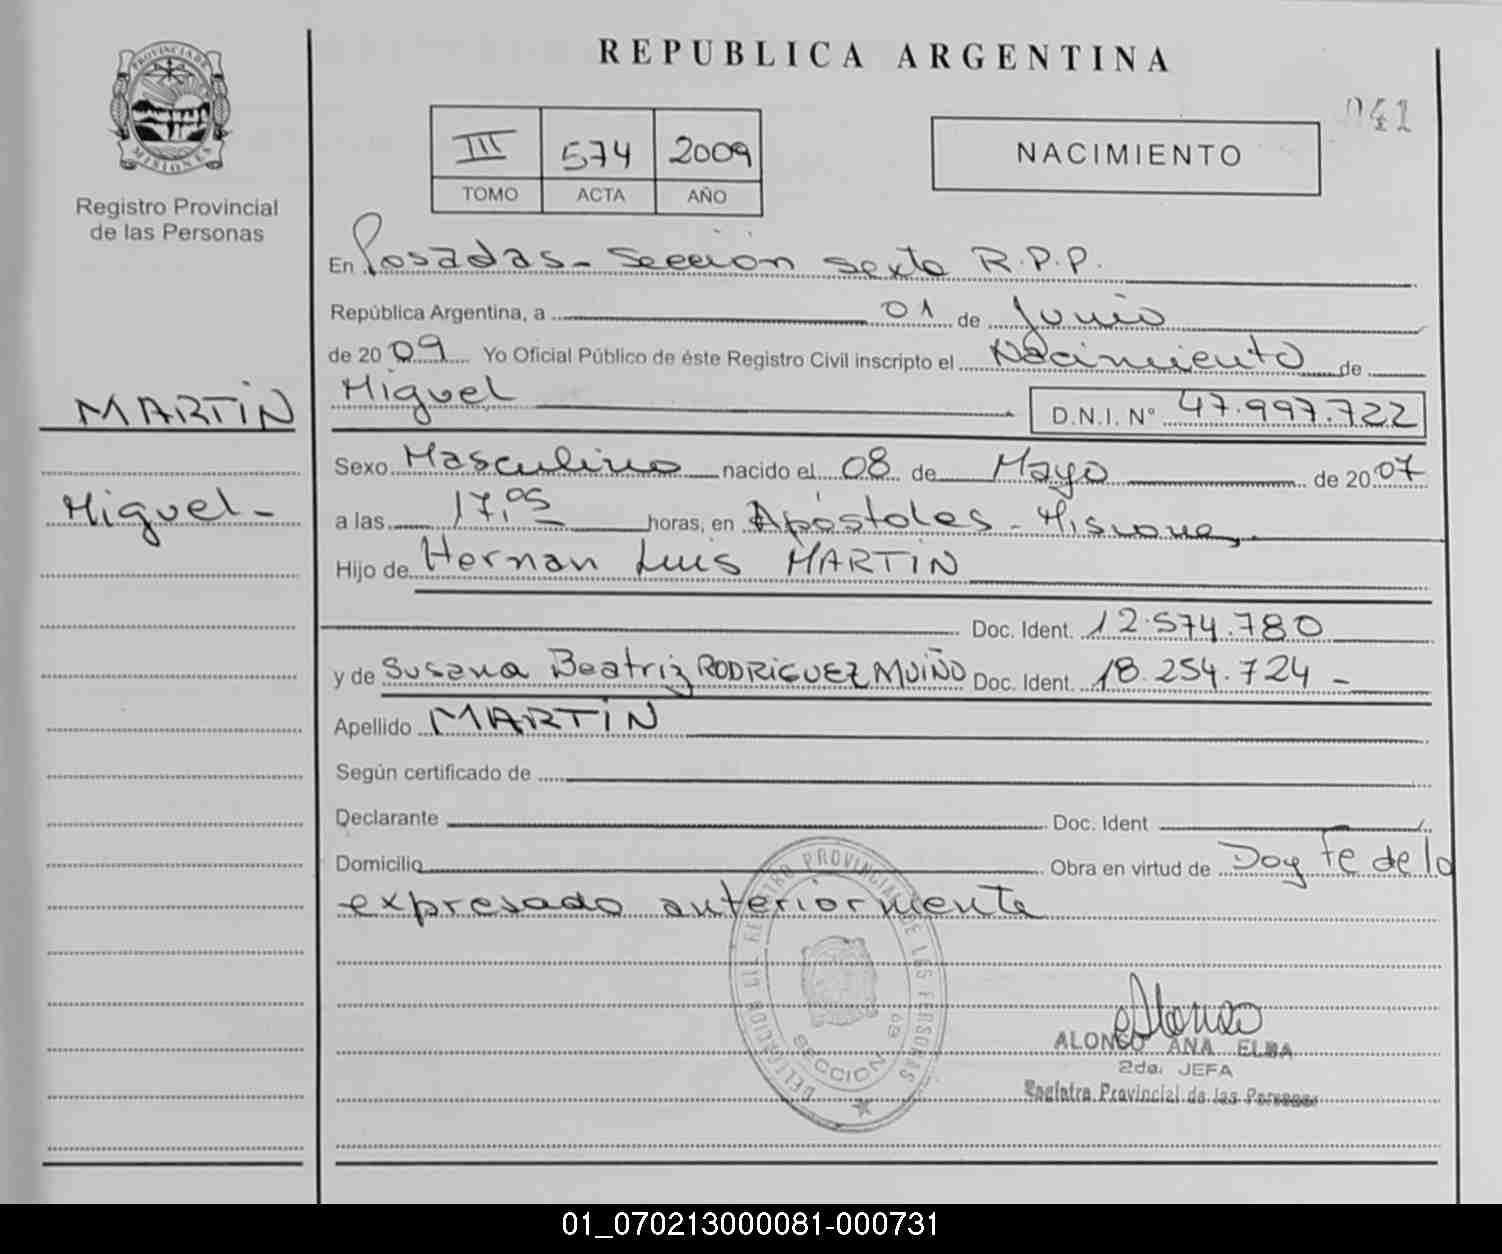 REPUBLICA ARGENTINA
PROVINCIA DE MISIONES
Registro Provincial
de las Personas
III 574 2009
TOMO ACTA AÑO
NACIMIENTO
041
En Posadas - Sección sexta R.P.P.
República Argentina, a 01 de Junio
de 2009 Yo Oficial Público de éste Registro Civil inscripto el Nacimiento de
MARTIN
Miguel D.N.I. N° 47.997.722
Sexo Masculino nacido el 08 de Mayo de 2007
Miguel -
a las 17,05 horas, en Apóstoles - Misiones
Hijo de Hernan Luis MARTIN
Doc. Ident. 12.574.780
y de Susana Beatriz RODRIGUEZ MUIÑO Doc. Ident. 18.254.724 -
Apellido MARTIN
Según certificado de
Declarante Doc. Ident
Domicilio Obra en virtud de Doy fe de lo
expresado anteriormente
REGISTRO PROVINCIAL DE LAS PERSONAS
SECCION 6a
ALONSO ANA ELBA
2da. JEFA
Registro Provincial de las Personas
01_070213000081-000731